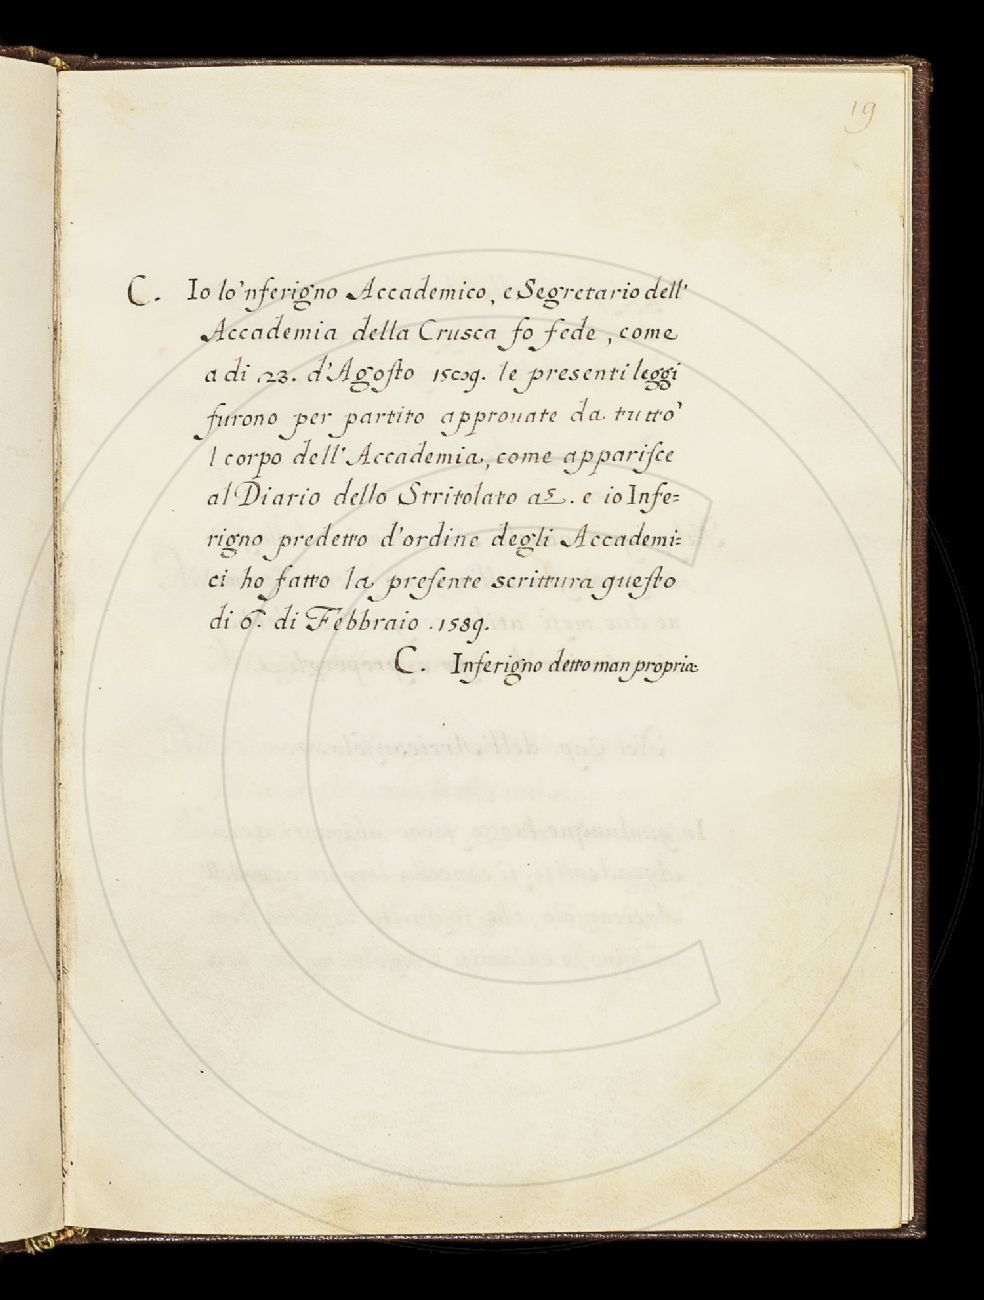 19
C. Io lo'nferigno Accademico, e Segretario dell'
Accademia della Crusca fo fede, come
a di 23. d'Agosto 1589. le presenti leggi
furono per partito approuate da tutto'
l corpo dell'Accademia, come apparisce
al Diario dello Stritolato a . e io Infe=
rigno predetto d'ordine degli Accademi=
ci ho fatto la presente scrittura questo
di 6. di Febbraio .1589.
C. Inferigno detto man propria